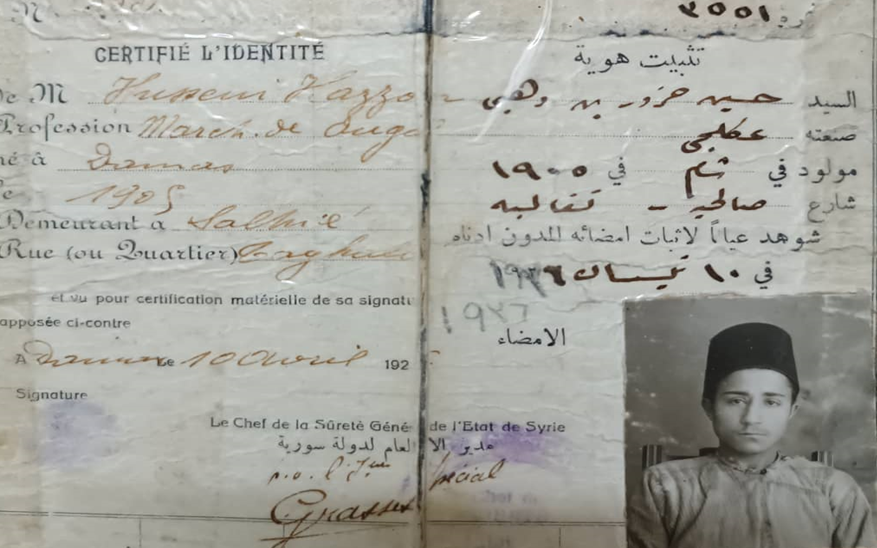 CERTIFIÉ L'IDENTITÉ
de M Husseni Kazzour
Profession March. de
né à Damas
le 1905
Demeurant à Salhié
Rue (ou Quartier)
et vu pour certification matérielle de sa signatu
apposée ci-contre
A Damas Le 10 Avril 192
Signature
٣٥٥١
تثبيت هوية
السيد حسين بن وهبي
صنعته
مولود في شام في ١٩٠٥
شارع صالحيه -
شوهد عياناً لاثبات امضائه المدون ادناه
في ١٠ نيسان ١٩٢٦
١٩٢٦
الامضاء
Le Chef de la Sûreté Géné de l'Etat de Syrie
مدير الا العام لدولة سورية
p.o. l'